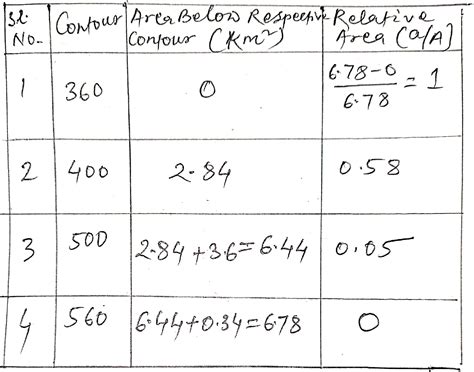 Sl. No. | Contour | Area Below Respective Contour (Km²) | Relative Area (a/A)
1 | 360 | 0 | 6.78-0 / 6.78 = 1
2 | 400 | 2.84 | 0.58
3 | 500 | 2.84+3.6=6.44 | 0.05
4 | 560 | 6.44+0.34=6.78 | 0